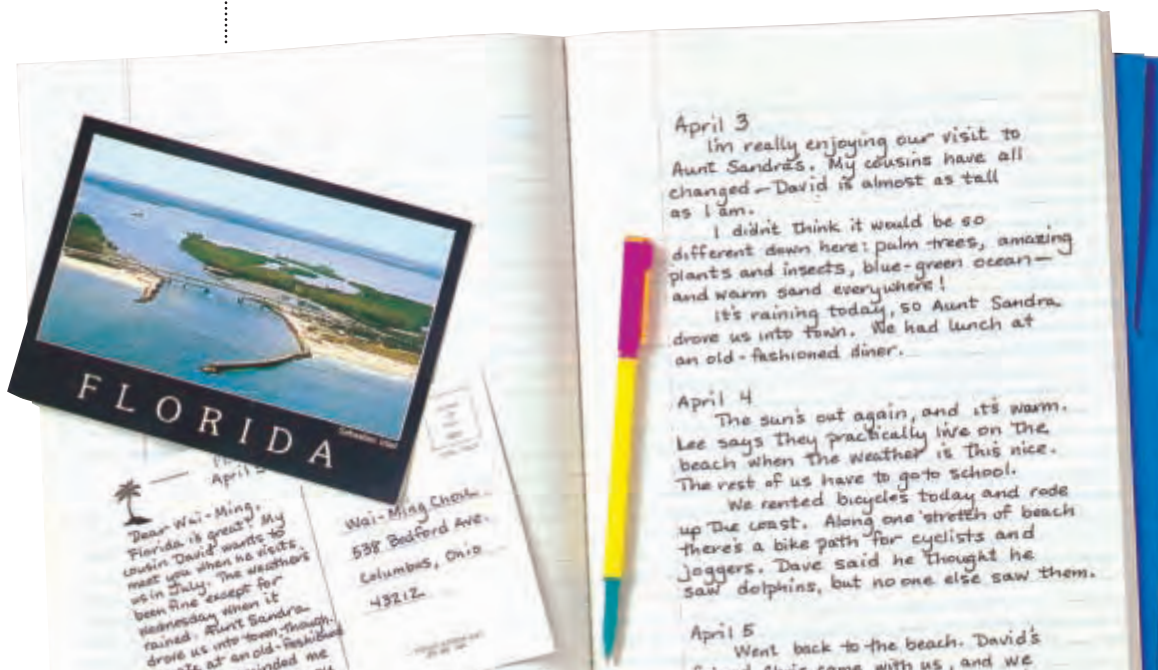 FLORIDA
Sebastian Inlet
April
Dear Wai-Ming,
Florida is great! My
cousin David wants to
meet you when he visits
us in July. The weather's
been fine except for
Wednesday when it
rained. Aunt Sandra
drove us into town, though.
at an old-fashioned
reminded me
you
Wai-Ming Chou
538 Bedford Ave.
Columbus, Ohio
43212
April 3
I'm really enjoying our visit to
Aunt Sandra's. My cousins have all
changed—David is almost as tall
as I am.
I didn't think it would be so
different down here: palm trees, amazing
plants and insects, blue-green ocean—
and warm sand everywhere!
It's raining today, so Aunt Sandra
drove us into town. We had lunch at
an old-fashioned diner.
April 4
The sun's out again, and it's warm.
Lee says they practically live on the
beach when the weather is this nice.
The rest of us have to go to school.
We rented bicycles today and rode
up the coast. Along one stretch of beach
there's a bike path for cyclists and
joggers. Dave said he thought he
saw dolphins, but no one else saw them.
April 5
Went back to the beach. David's
came with us, and we